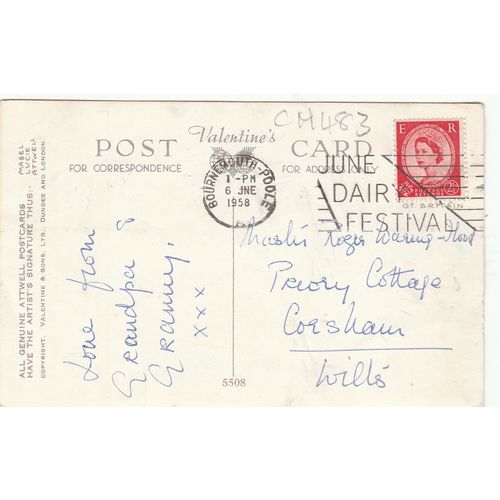 CH483
Valentine's
POST CARD
FOR CORRESPONDENCE
FOR ADDRESS ONLY
BOURNEMOUTH-POOLE
1-PM
6 JNE
1958
JUNE
DAIRY
FESTIVAL
E R
2½
GT. BRITAIN
ALL GENUINE ATTWELL POSTCARDS
HAVE THE ARTIST'S SIGNATURE THUS:-
MABEL
LUCIE
ATTWELL
COPYRIGHT. VALENTINE & SONS, LTD., DUNDEE AND LONDON.
Love from
Grandpa &
Granny.
xxx
Roger Waring-
Priory Cottage
Corsham
Wilts
5508